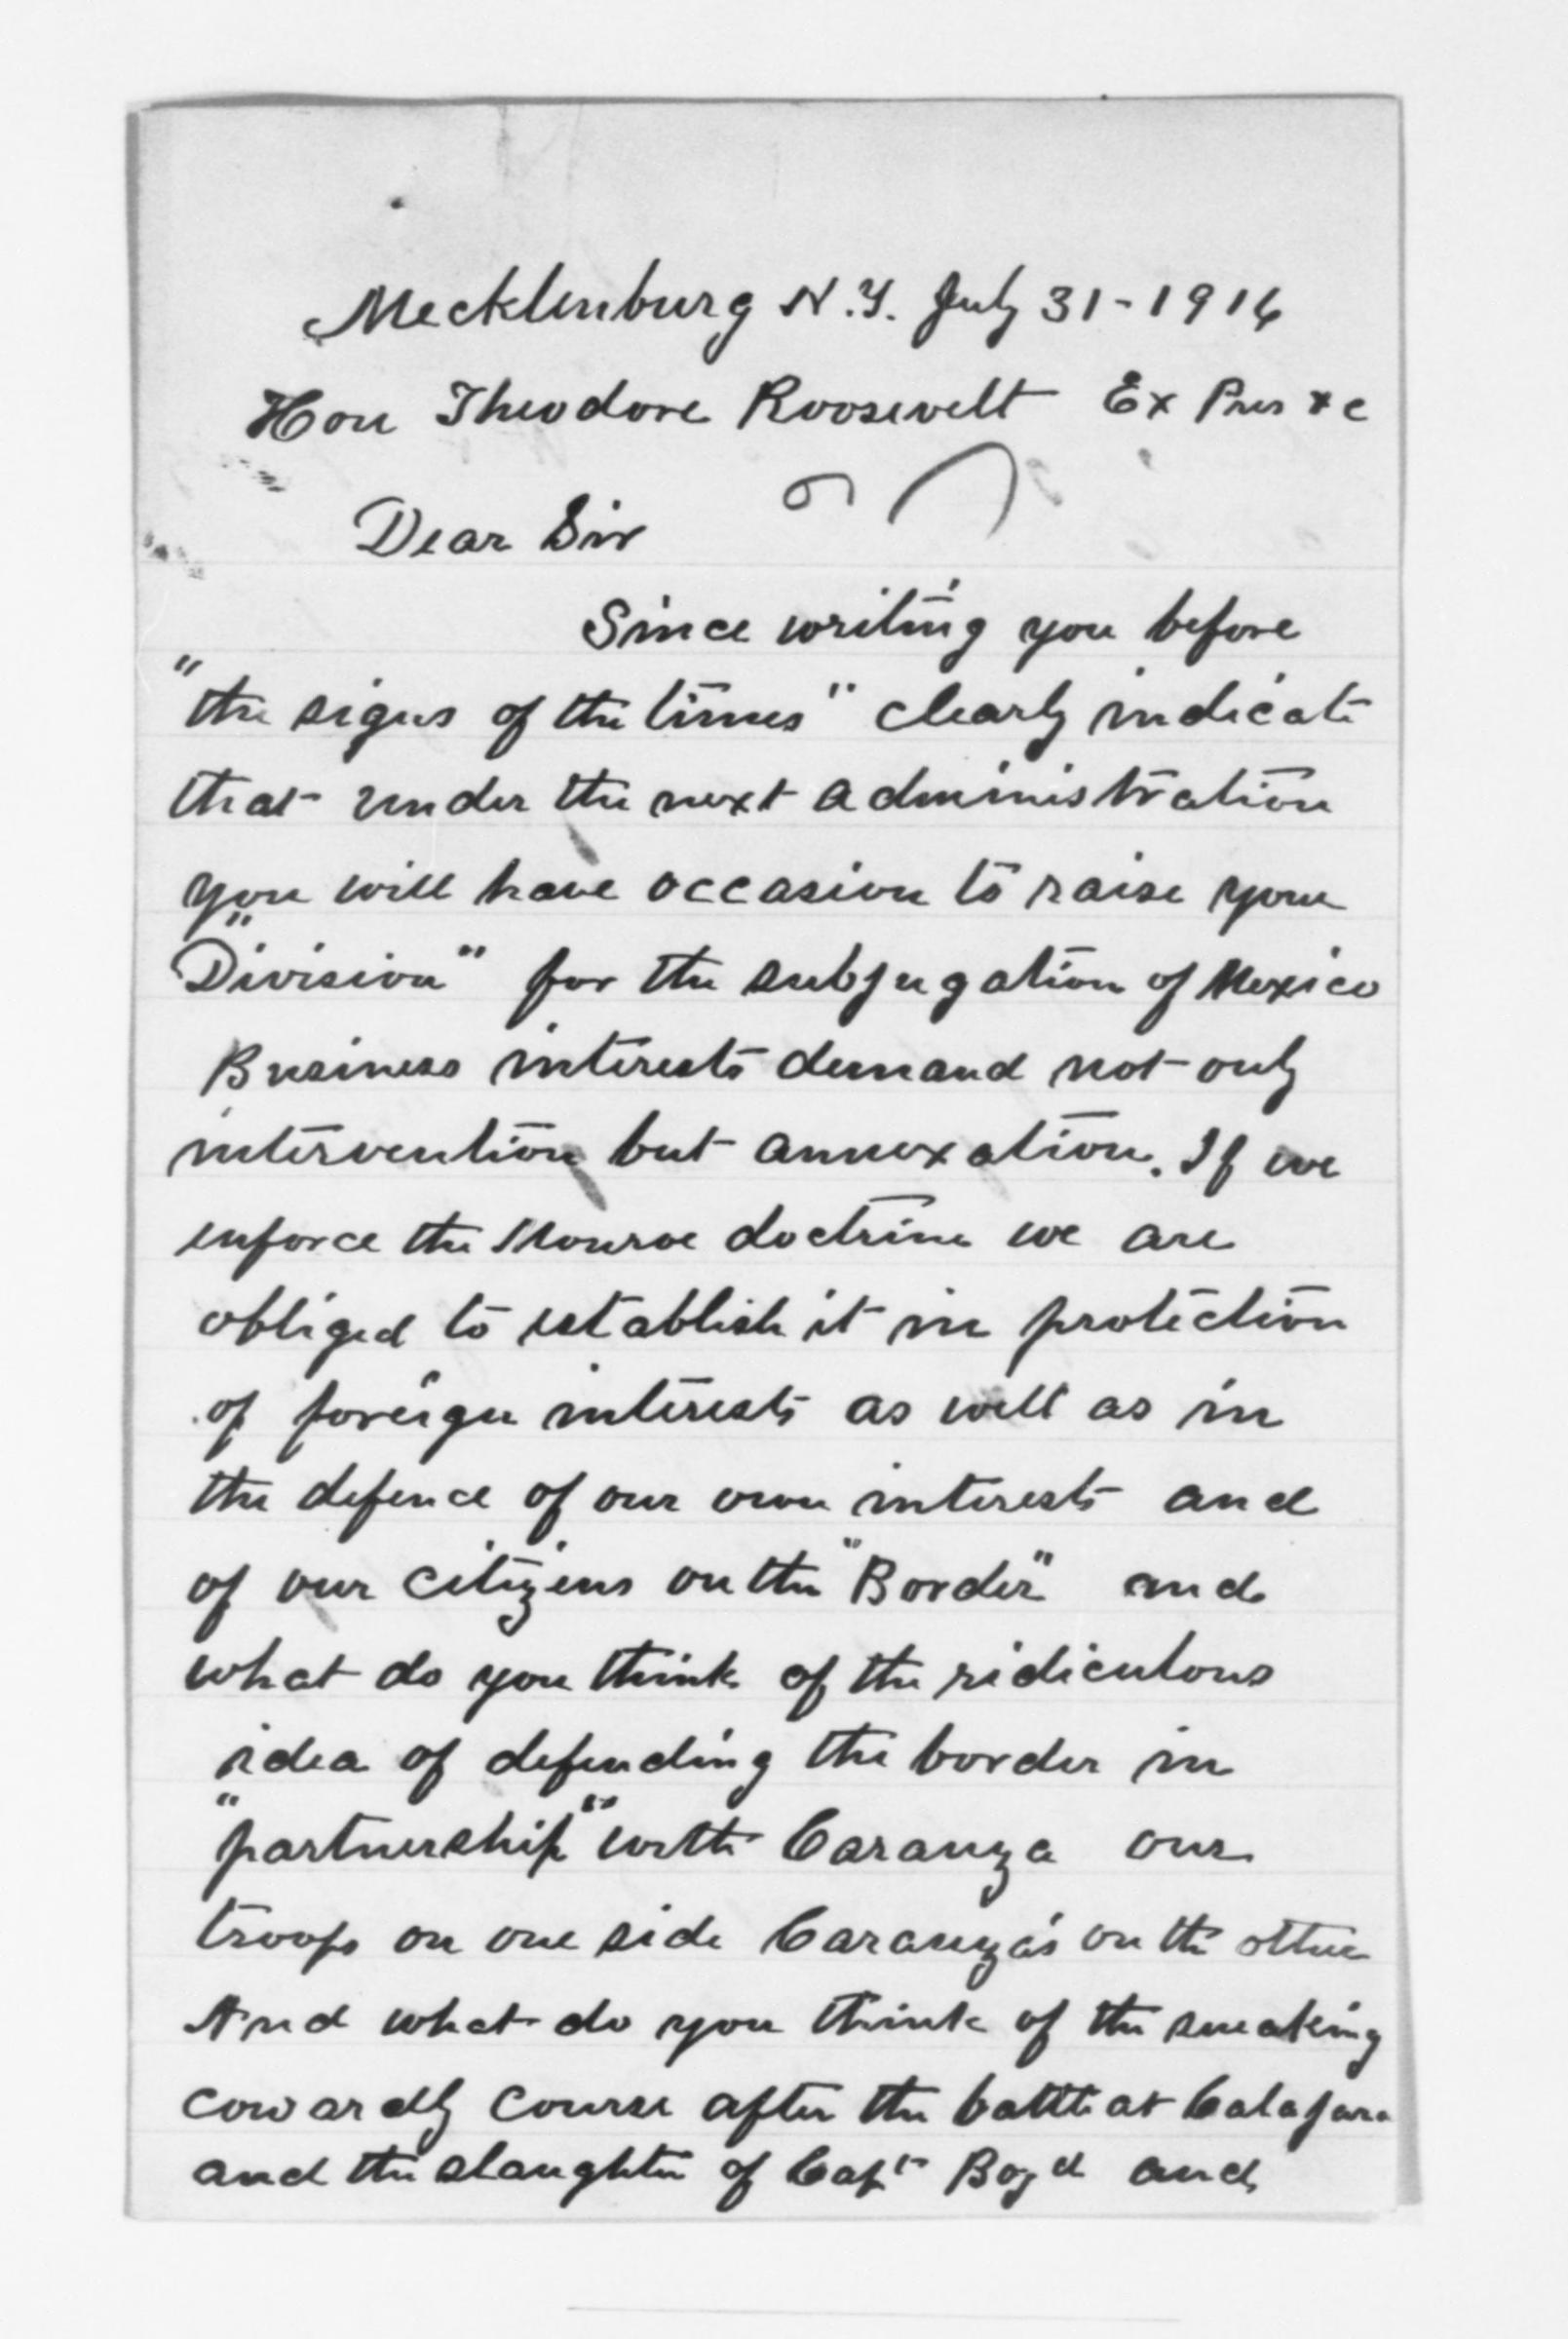 Mecklenburg N.Y. July 31-1916
Hon Theodore Roosevelt Ex Pres &c
Dear Sir
Since writing you before
"the signs of the times" clearly indicate
that under the next administration
you will have occasion to raise your
"Division" for the subjugation of Mexico
Business interests demand not only
intervention but annexation. If we
enforce the Monroe doctrine we are
obliged to establish it in protection
of foreign interests as well as in
the defence of our own interests and
of our citizens on the "Border" and
what do you think of the ridiculous
idea of defending the border in
"partnership" with Caranza our
troops on one side Caranza's on the other
And what do you think of the sneaking
cowardly course after the battle at
and the slaughter of Capt Boyd and